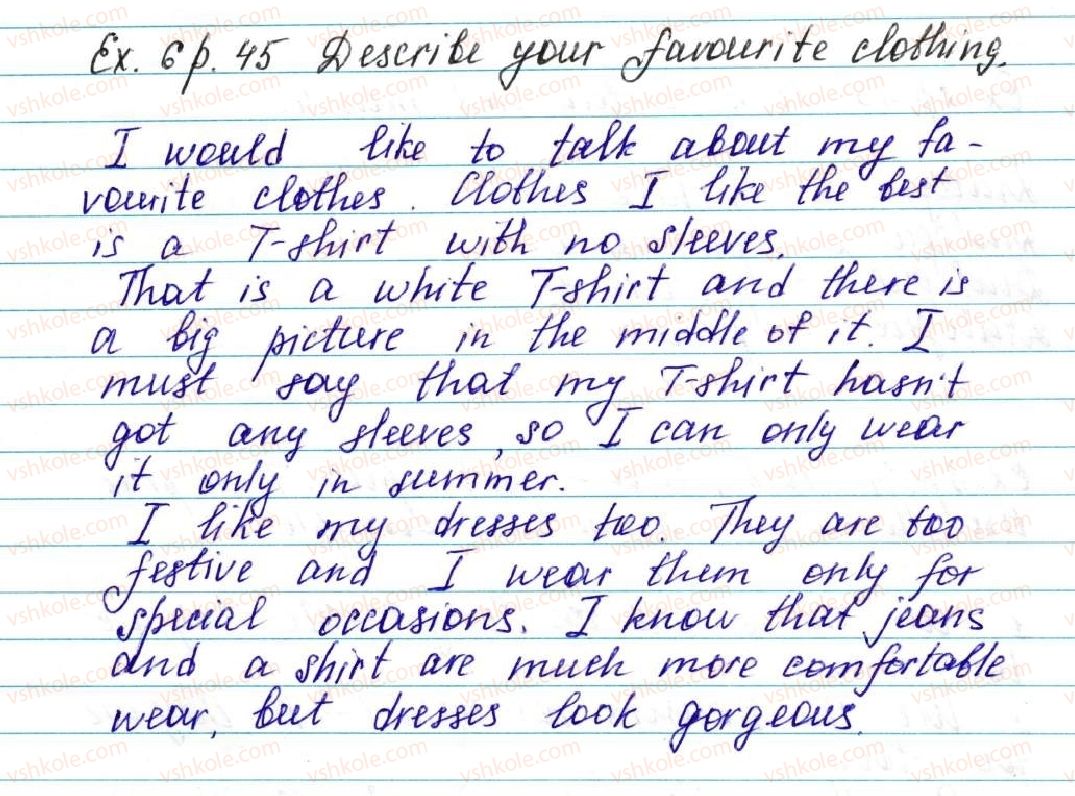 Ex. 6 p. 45 Describe your favourite clothing.
I would like to talk about my fa-
vourite clothes. Clothes I like the best
is a T-shirt with no sleeves.
That is a white T-shirt and there is
a big picture in the middle of it. I
must say that my T-shirt hasn't
got any sleeves, so I can only wear
it only in summer.
I like my dresses too. They are too
festive and I wear them only for
special occasions. I know that jeans
and a shirt are much more comfortable
wear, but dresses look gorgeous.